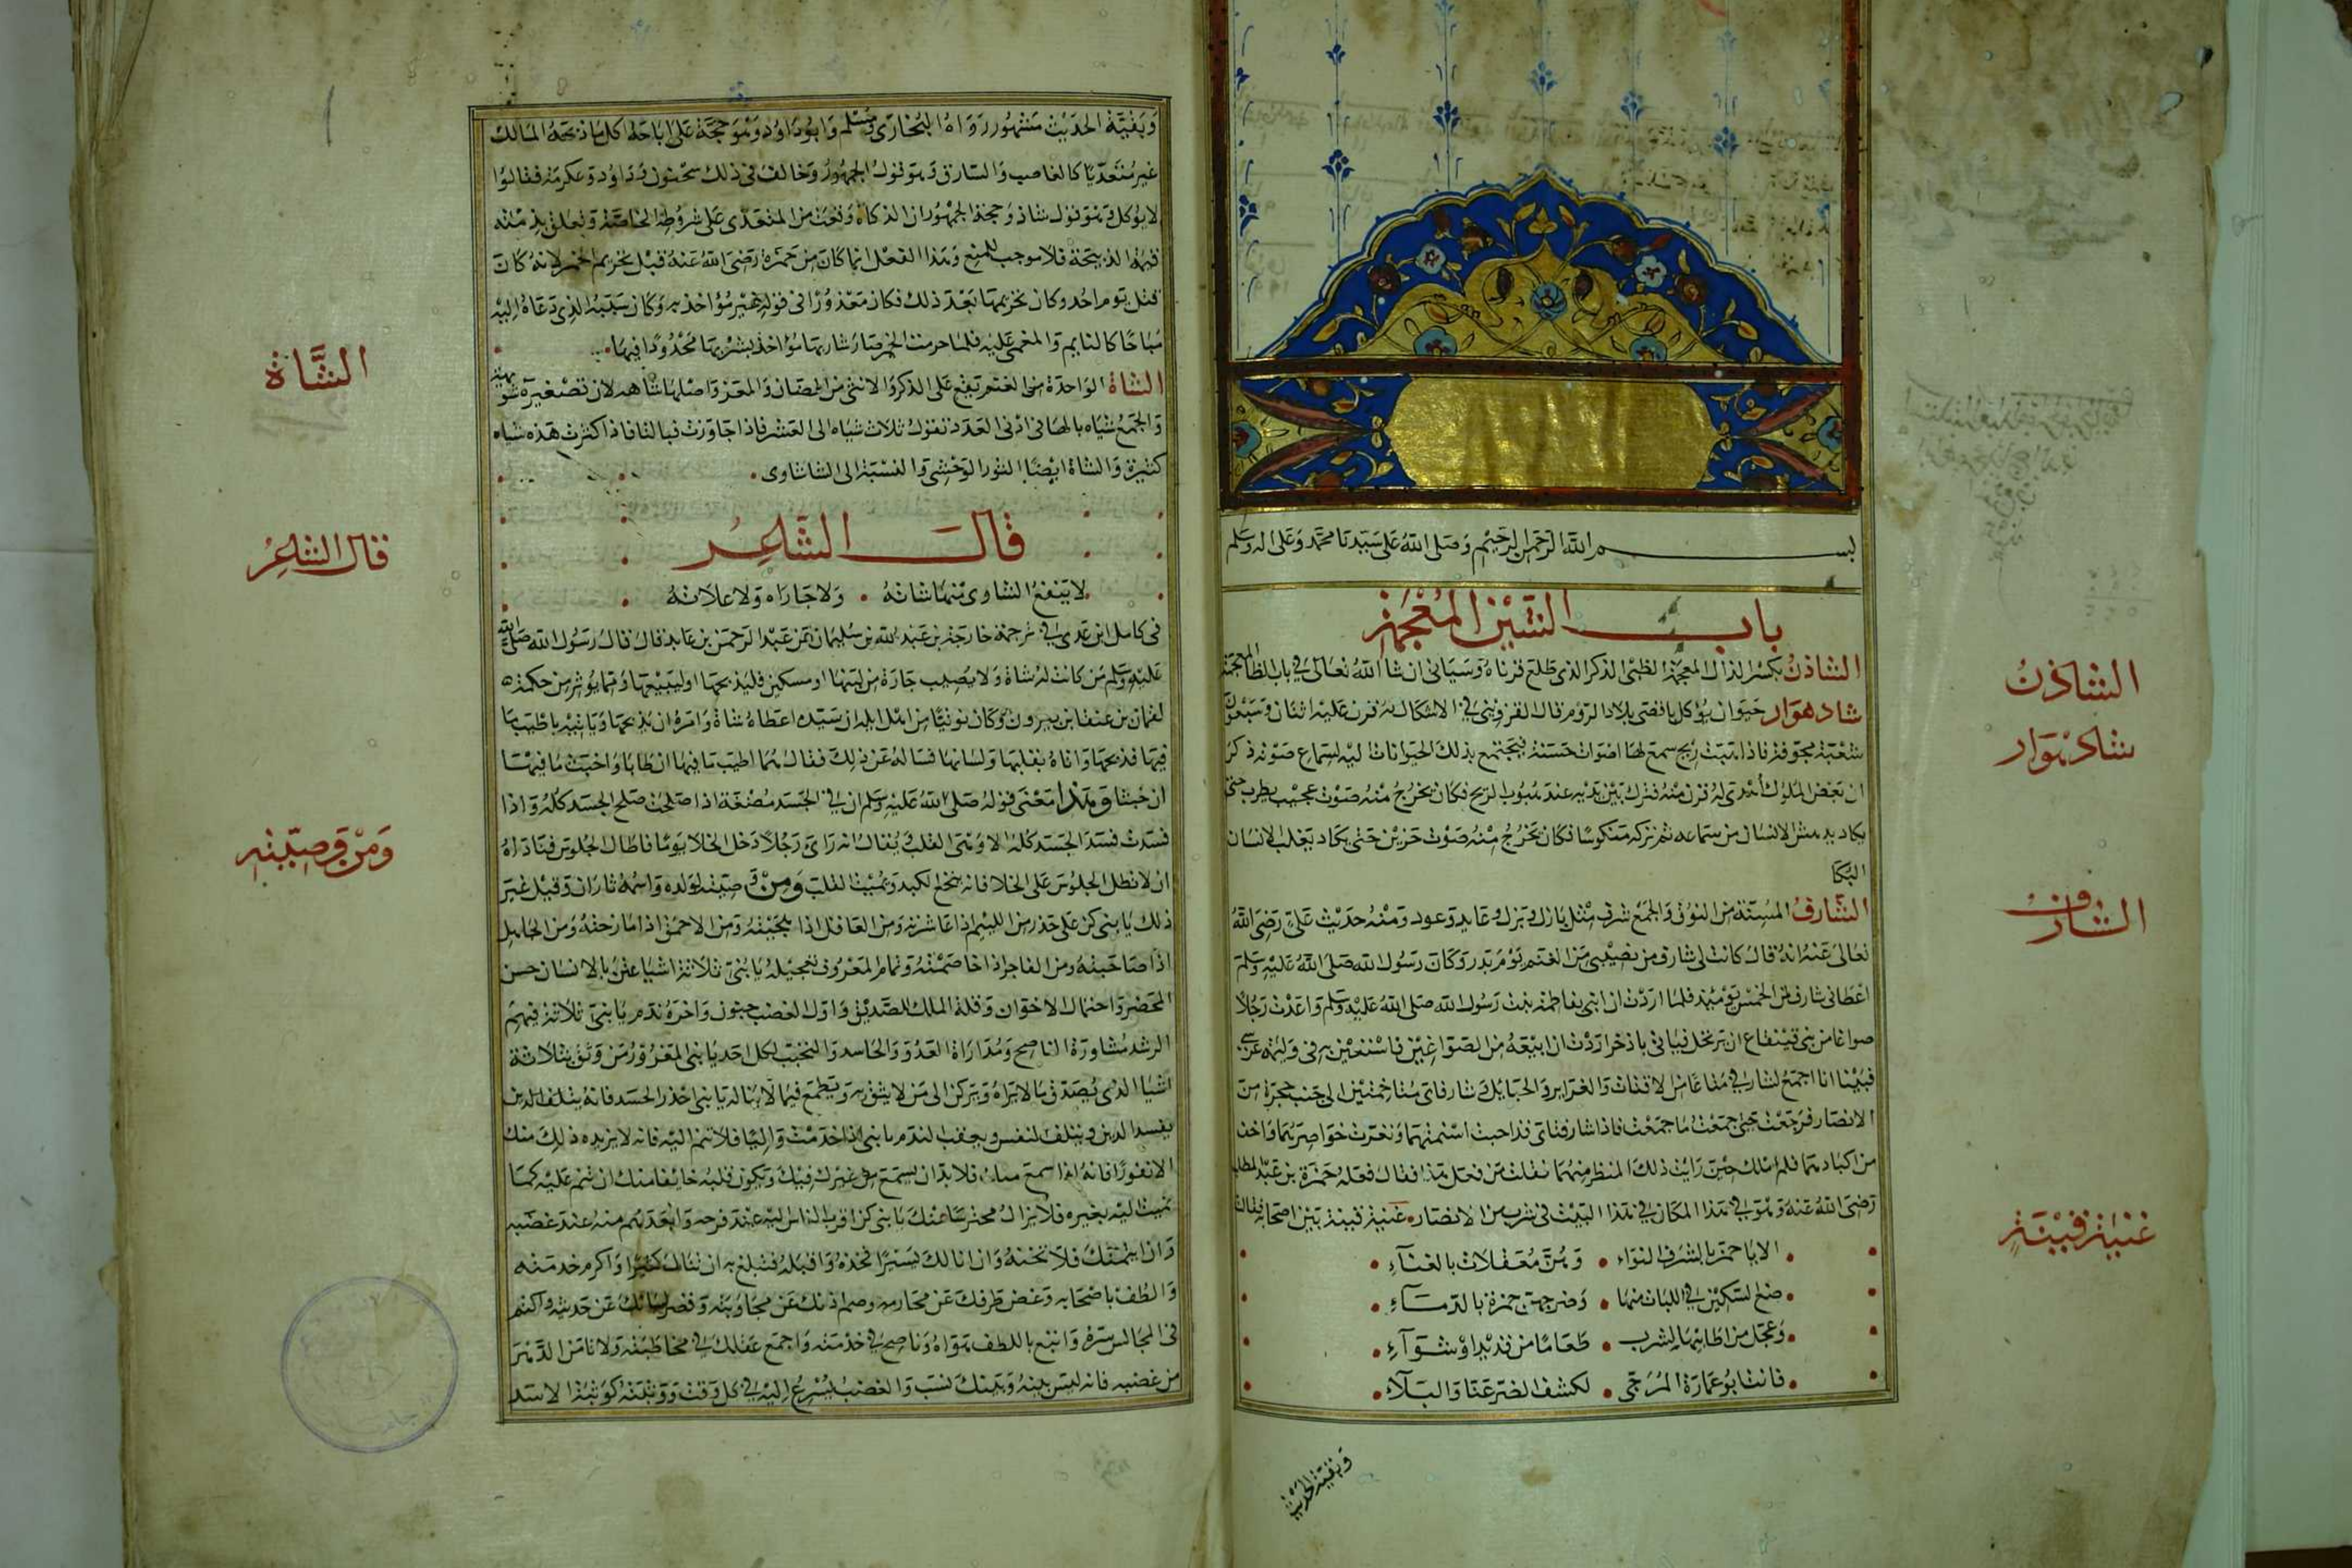 بسم الله الرحمن الرحيم وصلى الله على سيدنا محمد وعلى اله وسلم
باب الشين المعجمة
الشادن بكسر الذال المعجمة الظبى الذكر الذى طلع قرناه وسياتى ان شا الله تعالى في باب الظا المعجمة
شاد هوار حيوان يوكل باقصى بلاد الروم قال القزوينى في الاشكال له قرن عليه اثنان وسبعون
شعبة مجوفة فاذا هبت ريح سمع لها اصوات حسنة فيجتمع بذلك الحيوانات اليه لسماع صوته ذكر
ان بعض الملوك أهدى له قرن منه فترك بين يديه عند هبوب الريح فكان يخرج منه صوت عجيب يطرب حتى
يكاد يدهش الانسان من سماعه ثم تركه منكوسا فكان يخرج منه صوت حزين حتى يكاد يغلب الانسان
البكا
الشارف المسنة من النوق والجمع شرف مثل بازل وبزل وعايد وعود ومنه حديث على رضى الله
تعالى عنه انه قال كانت لى شارف من نصيبى من الغنم يوم بدر وكان رسول الله صلى الله عليه وسلم
اعطانى شارفا من الخمس يومئذ فلما اردت ان ابنى بفاطمة بنت رسول الله صلى الله عليه وسلم واعدت رجلا
صواغا من بنى قينقاع ان يرتحل فياتى باذخر اردت ان ابيعه من الصواغين فاستعين به فى وليمة عرسى
فبينا انا اجمع لشارفي متاعا من الاقتاب والغراير والحبايل وشارفاى مناختين الى جنب حجرة من
الانصار فرجعت حتى جمعت ما جمعت فاذا شارفتاى قد احبت اسنمتهما ونقرت خواصرهما واخذ
من كبادهما فلم املك حين رايت ذلك المنظر منهما فقلت من فعل هذا فقال فعله حمزة بن عبد المطلب
رضى الله عنه وهو في هذا المكان في هذا البيت فى شرب من الانصار غنية قينة بين اصحابه فقالت
الايا حمز بالشرف النواء وهن معقلات بالفناء
ضع السكين في اللبات منها وضرجهن حمزة بالدماء
وعجل من اطايبها لشرب طعاما من قديد او شواء
فانت ابو عمارة المرجى لكشف الضر عنا والبلاء
وبقية الحديث
الشادن
شاد هوار
الشارف
غنية قينة
وبقية الحديث مشهور رواه البخارى ومسلم وابو داود وهو حجة على اباحة اكل ما ذبحه المالك
غير متعديا كالغاصب والسارق وهو قول الجمهور وخالف فى ذلك سحنون وداود وعكرمة فقالوا
لا يوكل وهو قول شاذ وحجة الجمهور ان الذكاة وقعت من المتعدى على شروطه الخاصة وتعلق بذمته
قيمة الذبيحة فلا موجب للمنع وهذا الفعل انما كان من حمزة رضى الله عنه قبل تحريم الخمر لانه كان
قتل يوم احد وكان تحريمها بعد ذلك فكان معذورا فى قوله غير مؤاخذ به وكان سببه الذى دعاه اليه
مباحا كالنايم والمغمى عليه فلما حرمت الخمر صار شاربها مؤاخذ بشربها محدودا فيها
الشاة الواحدة من الغنم تقع على الذكر والانثى من الضان والمعز واصلها شاهه لان تصغيره شويهة
والجمع شياه بالها فى ادنى العدد تقول ثلاث شياه الى العشر فاذا جاوزت فبالتا فاذا كثرت هذه شياه
كثيرة والشاة ايضا الثور الوحشى والنسبة الى الشا شاوى
قال الشاعر
لا ينفع الشاوى منها شاته ولا حماراه ولا علاته
فى كامل ابن عدى في ترجمة خارجة بن عبد الله بن سليمان عن عبد الرحمن بن عايد قال قال رسول الله صلى الله
عليه وسلم من كانت له شاة ولا يصيب جارة من لبنها او مسكين فليذبحها او ليبيعها ومما يوثر من حكمة
لقمان بن عنقا بن بيرون وكان نوبيا من اهل ايله ان سيده اعطاه شاة وامره ان يذبحها وياتيه باطيب ما
فيها فذبحها واتاه بقلبها ولسانها فساله عن ذلك فقال هما اطيب ما فيها ان طابا واخبث ما فيها
ان خبثا وهذا معنى قوله صلى الله عليه وسلم ان في الجسد مضغة اذا صلحت صلح الجسد كله واذا
فسدت فسد الجسد كله الا وهى القلب يقال انه راى رجلا دخل الخلا يوما فاطال الجلوس فناداه
ان لا تطل الجلوس على الخلا فانه ينخلع الكبد ويميت القلب ومن وصيته لولده واسمه ثاران وقيل غير
ذلك يا بنى كن على حذر من اللئيم اذا عاشرته ومن العاقل اذا هجيته ومن الاحمق اذا مازحته ومن الجاهل
اذا صاحبته ومن الفاجر اذا خاصمته وتمام المعروف تعجيله يا بنى ثلاثة اشيا عشن بالانسان حسن
المحضر واحتمال الاخوان وقلة الملك للصديق واول الغضب جنون واخره ندم يا بنى ثلاثة فيهم
الرشد مشاورة الناصح ومداراة العدو والحاسد والتحبب لكل احد يا بنى المغرور من وثق بثلاثة
اشيا الذى يصدق ما لا يراه ويركن الى من لا يثق به ويطمع فيما لا يناله يا بنى احذر الحسد فانه يتلف الدين
يفسد الدين ويتلف النفس ويعقب الندم يا بنى اذا خدمت واليا فلا تنم اليه فانه لا يزيده ذلك منك
الا نفورا فانه اذا سمع منك فلا بد ان يسمع من غيرك فيك ويكون قلبه خايفا منك ان تنم عليه كما
نميت اليه بغيره فلا يزال محترسا منك يا بنى كن اقرب الناس اليه عند فرحه وابعدهم منه عند غضبه
وان ايتمنك فلا تخنه وان انالك يسيرا فخذه واقبله فتبلغ به ان تنال كثيرا واكرم خدمته
والطف باصحابه وغض طرفك عن محارمه وصم اذنك عن مجاوبته وقصر لسانك عن حديثه واكتم
فى المجالس سره واتبع باللطف هواه وناصح في خدمته واجمع عقلك في مخاطبته ولا تامن الدهر
من غضبه فانه ليس بينه وبينك نسب والغضب يسرع اليه في كل وقت ووثبته كوثبة الاسد
الشاة
قال الشاعر
ومن وصيته